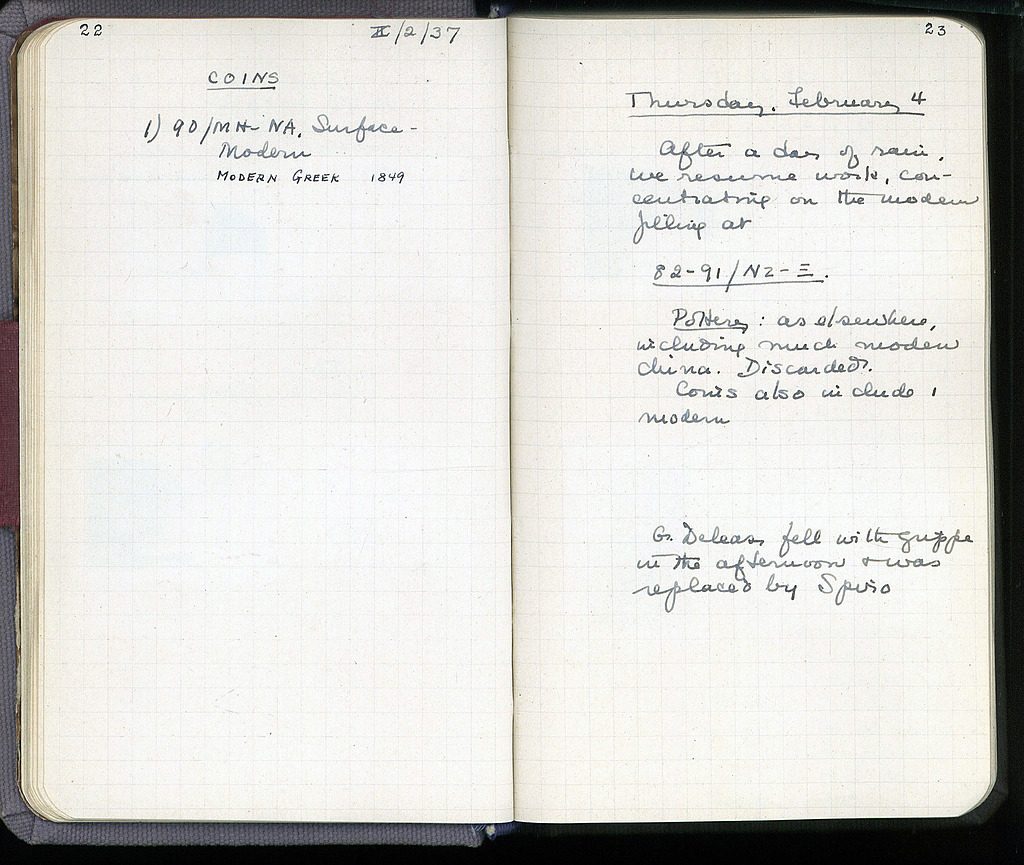 22
II/2/37
COINS
1) 90/MH-NA, Surface-
Modern
MODERN GREEK 1849
23
Thursday, February 4
After a day of rain,
we resume work, con-
centrating on the modern
filling at
82-91/NZ-Ξ.
Pottery: as elsewhere,
including much modern
china. Discarded.
Coins also include 1
modern
G. Deleas fell with grippe
in the afternoon & was
replaced by Spiro